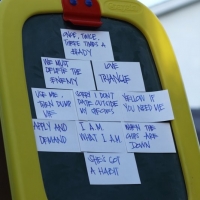 ONCE, TWICE,
THREE TIMES A
LADY
WE MUST
DEFEAT THE
ENEMY
LOVE
TRIANGLE
USE ME,
THEN DUMP
ME
SORRY I DON'T
DATE OUTSIDE
MY SPECIES
YELLOW IF
YOU NEED ME
APPLY AND
DEMAND
I AM
WHAT I AM
WHEN THE
CHIPS ARE
DOWN
SHE'S GOT
A HABIT